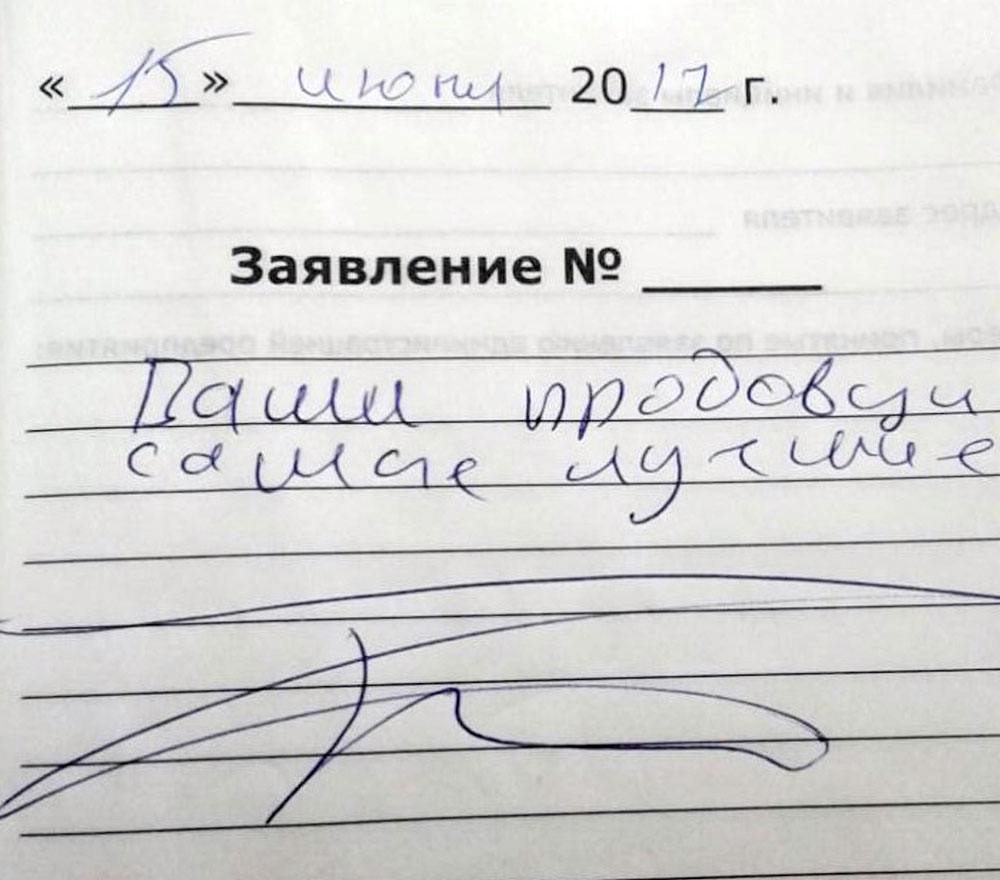 « 15 » июня 2017 г.
Заявление № ____
Ваши продовцы
самые лучшие